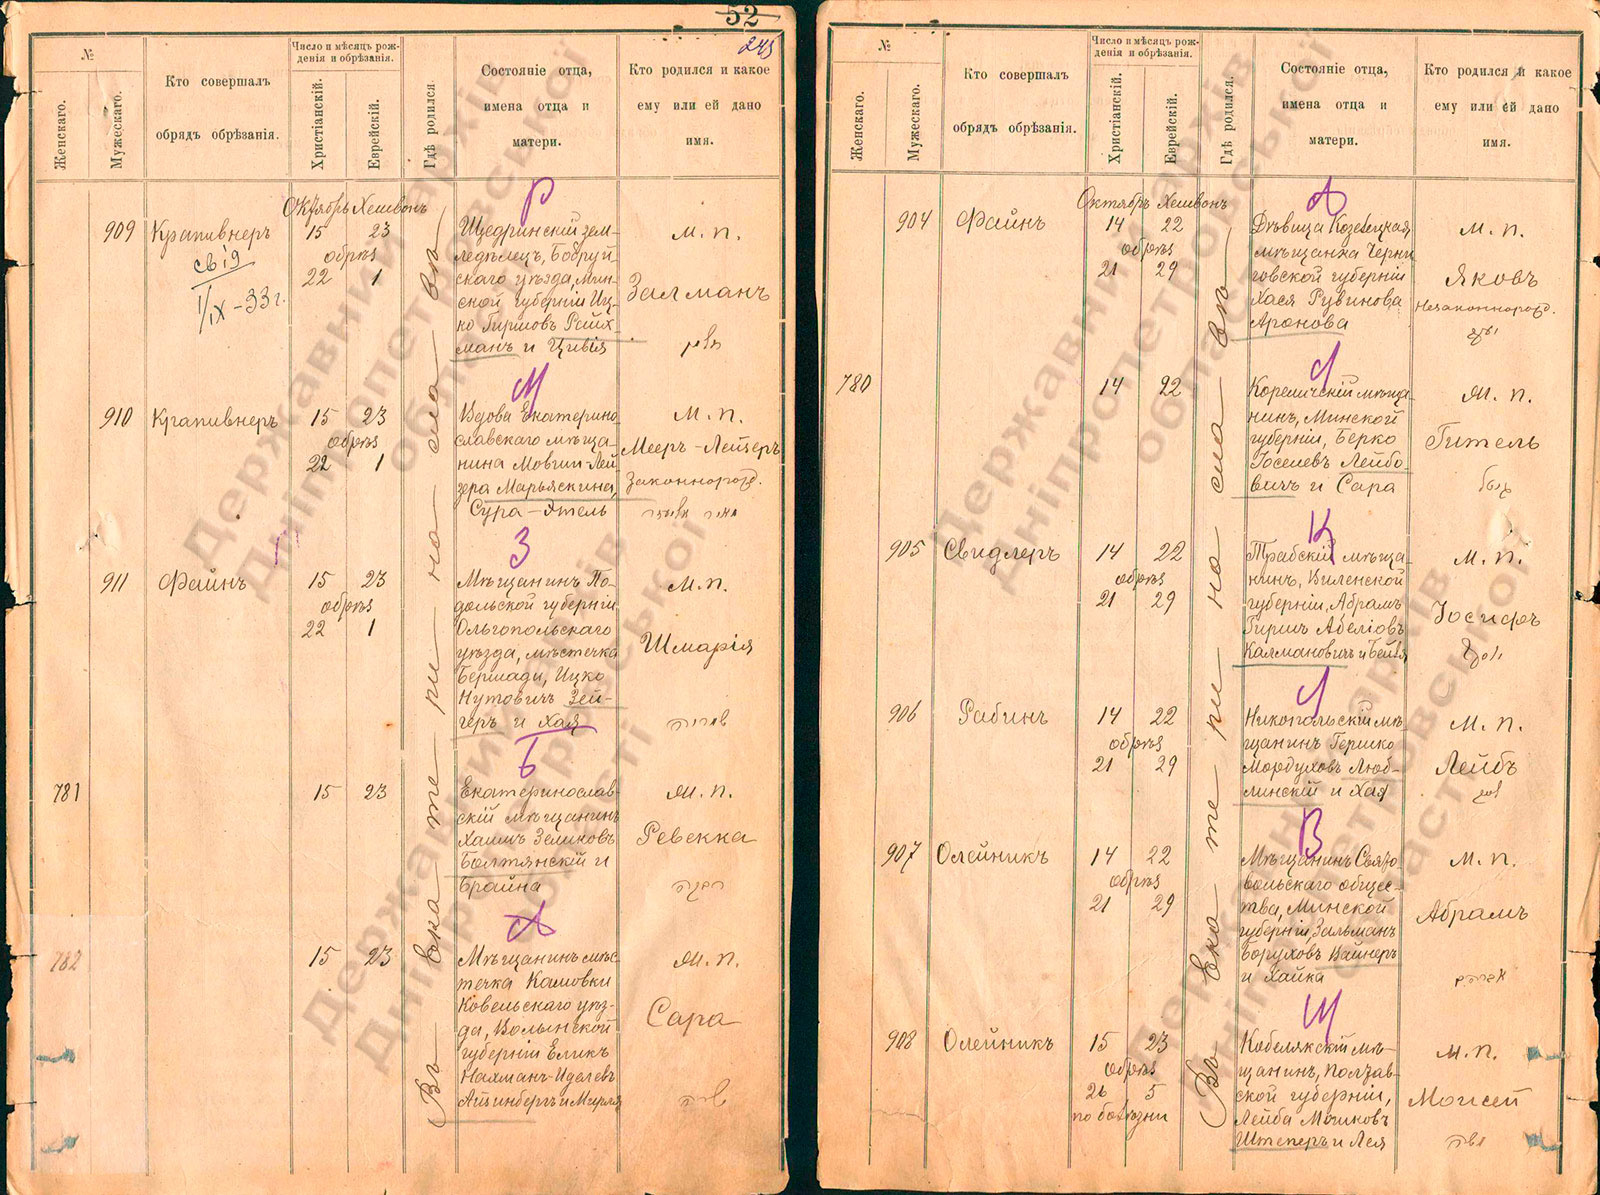 52
243
№
Женскаго.
Мужескаго.
Кто совершалъ
обрядъ обрѣзанія.
Число и мѣсяцъ рож-
денія и обрѣзанія.
Христіанскій.
Еврейскій.
Гдѣ родился
Состояніе отца,
имена отца и
матери.
Кто родился и какое
ему или ей дано
имя.
Октябрь Хешвонъ
Въ Екатеринославѣ
909
Крапивнеръ
свід
1/IX-33 г.
15 23
обрѣз
22 1
Р
Щедринскій зем-
ледѣлецъ, Бобруй-
скаго уѣзда, Мин-
ской губерніи Иц-
ко Гиршовъ Райх-
манъ и Цивія
м. п.
Залманъ
910
Крапивнеръ
15 23
обрѣз
22 1
М
Вдова Екатерино-
славскаго мѣща-
нина Мовши-Лей-
зера Марьяскина,
Сура-Этель
м. п.
Мееръ-Лейзеръ
Законнорожд.
911
Файнъ
15 23
обрѣз
22 1
З
Мѣщанинъ По-
дольской губерніи
Ольгопольскаго
уѣзда, мѣстечка
Бершади, Ицко
Нутовичъ Зей-
геръ и Хая
м. п.
Шмарія
781
15 23
Б
Екатеринослав-
скій мѣщанинъ
Хаимъ Зелиховъ
Болтянскій и
Брайна
ж. п.
Ревекка
782
15 23
А
Мѣщанинъ мѣс-
течка
Ковельскаго уѣз-
да, Волынской
губерніи
Нахманъ-Иделевъ
Айзинбергъ и Мирля
ж. п.
Сара
№
Женскаго.
Мужескаго.
Кто совершалъ
обрядъ обрѣзанія.
Число и мѣсяцъ рож-
денія и обрѣзанія.
Христіанскій.
Еврейскій.
Гдѣ родился.
Состояніе отца,
имена отца и
матери.
Кто родился и какое
ему или ей дано
имя.
Октябрь Хешвонъ
Въ Екатеринославѣ
904
Файнъ
14 22
обрѣз
21 29
А
Дѣвица Козелецкая
мѣщанка Черни
говской губерніи
Хася Рувинова
Аронова
м. п.
Яковъ
Незаконнорожд.
780
14 22
Л
Кореличскій мѣща
нинъ, Минской
губерніи, Берко
Іоселевъ Лейбо-
вичъ и Сара
ж. п.
Гитель
905
Свидлеръ
14 22
обрѣз
21 29
К
Трабскій мѣща-
нинъ, Виленской
губерніи, Абрамъ
Гиршъ Абеліовъ
Калмановичъ и Бейля
м. п.
Іосифъ
906
Рабинъ
14 22
обрѣз
21 29
Л
Никопальскій мѣ-
щанинъ Гершко
Мордуховъ Люб-
линскій и Хая
м. п.
Лейбъ
907
Олейникъ
14 22
обрѣз
21 29
В
Мѣщанинъ
вольскаго общес-
тва, Минской
губерніи, Зальманъ
Боруховъ Вайнеръ
и Хайка
м. п.
Абрамъ
908
Олейникъ
15 23
обрѣз
26 5
по болѣзни
Ш
Кобелякскій мѣ-
щанинъ, Полтав-
ской губерніи,
Лейба Мошковъ
Штеперъ и Лея
м. п.
Моисей
Державний архів
Дніпропетровської
області